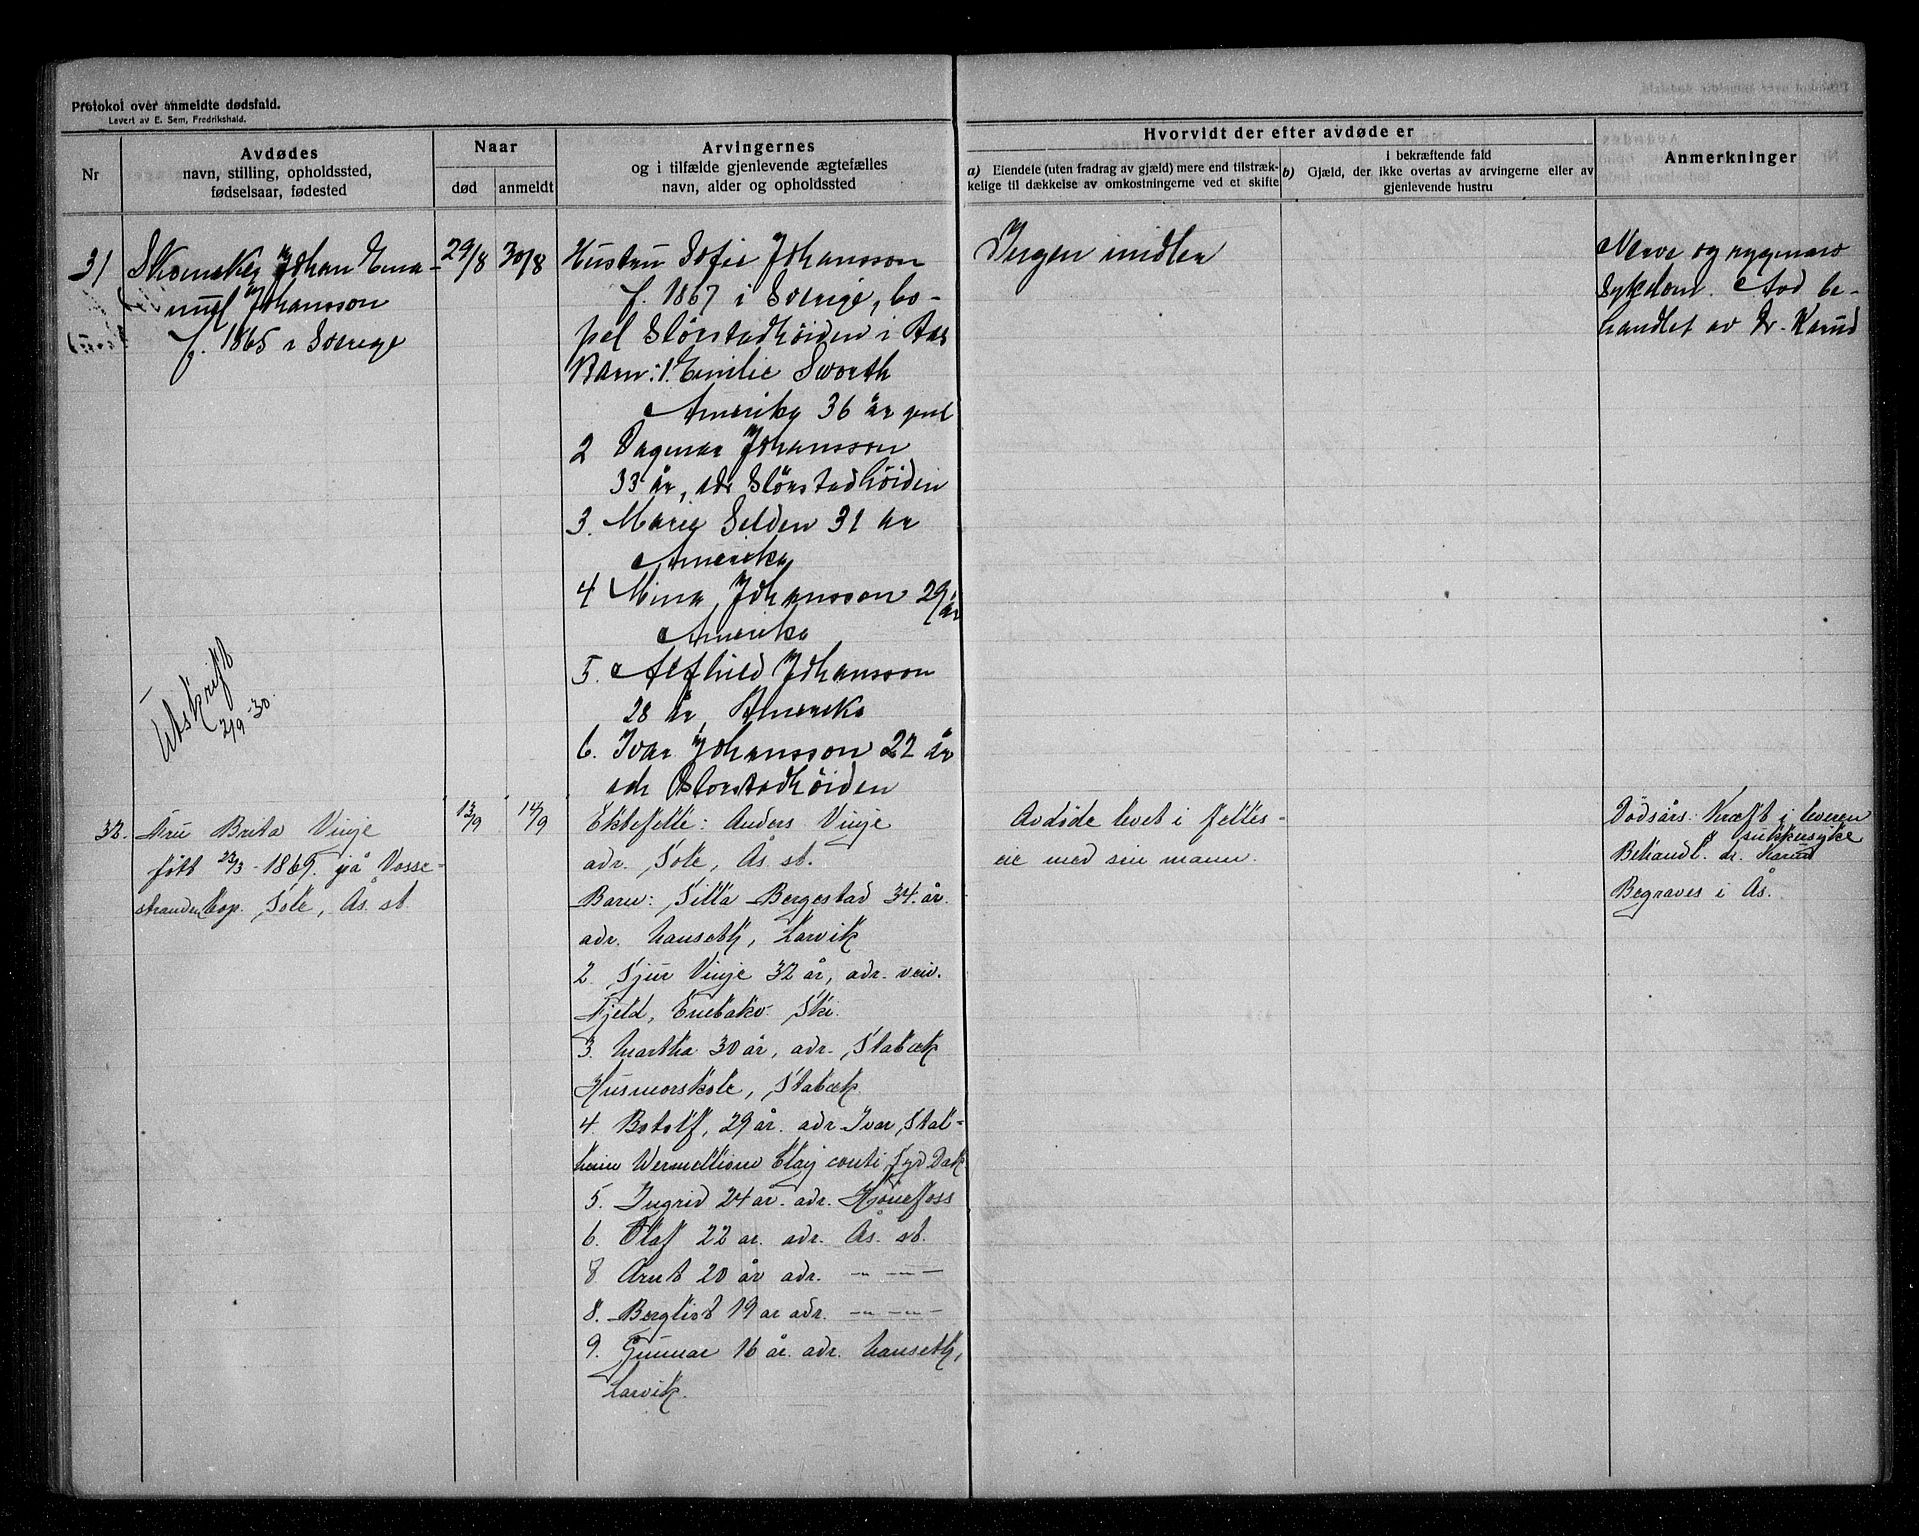 Protokol over anmeldte dødsfald.
Levert av E. Sem, Fredrikshald.
Nr
Avdødes
navn, stilling, opholdssted,
fødselsaar, fødested
Naar
død
anmeldt
Arvingernes
og i tilfælde gjenlevende ægtefælles
navn, alder og opholdssted
Hvorvidt der efter avdøde er
a) Eiendele (uten fradrag av gjæld) mere end tilstræk-
kelige til dækkelse av omkostningerne ved et skifte
I bekræftende fald
b) Gjæld, der ikke overtas av arvingerne eller av
gjenlevende hustru
Anmerkninger
31
Skomaker Johan Ema-
nuel Johansson
f. 1865 i Sverige
29/8
30/8
Hustru Sofie Johansson
f. 1867 i Sverige, bo-
pel Slørstadhøiden i Aas
Barn: 1. Emilie Sworth
Amerika 36 år gml
2 Dagmar Johansson
33 år, adr Slørstadhöiden
3. Marie Selden 31 år
Amerika
4 Mina Johansson 29 år
Amerika
5. Alfhild Johansson
28 år, Amerika
6. Ivar Johansson 22 år
adr Slorstadhöiden
Ingen midler
Nerve og rygmarv
sykdom. Avd be-
handlet av Dr. Karud
Utskrift
2/9-30
32.
Fru Brita Vinje
født 23/3-1869. på Vosse-
stranden bop. Sole, Ås st
13/9
14/9
Ektefelle: Anders Vinje
adr. Sole, Ås. st.
Barn: Silla Bergestad 34 år.
adr. Hanseth, Larvik
2. Sjur Vinje 32 år, adr. veiv.
Fjeld, Enebakv. Ski.
3. Martha 30 år, adr. Stabæk
Husmorskole, Stabæk.
4. Botolf, 29 år. adr Ivar Stal-
heim Wermellione Clay conti Syd Dak
5. Ingrid 24 år. adr. Hönefoss
6. Olaf 22 år. adr. Ås. st.
8 Arnt 20 år adr. — „ — „ —
8. Bergliot 19 år adr. — „ — „ —
9. Gunnar 16 år. adr. Hanseth,
Larvik.
Avdøde levet i felles-
eie med sin mann.
Dödsårs. Kræft i leveren
sukkersyke
Behandl. dr. Karud
Begraves i Ås.